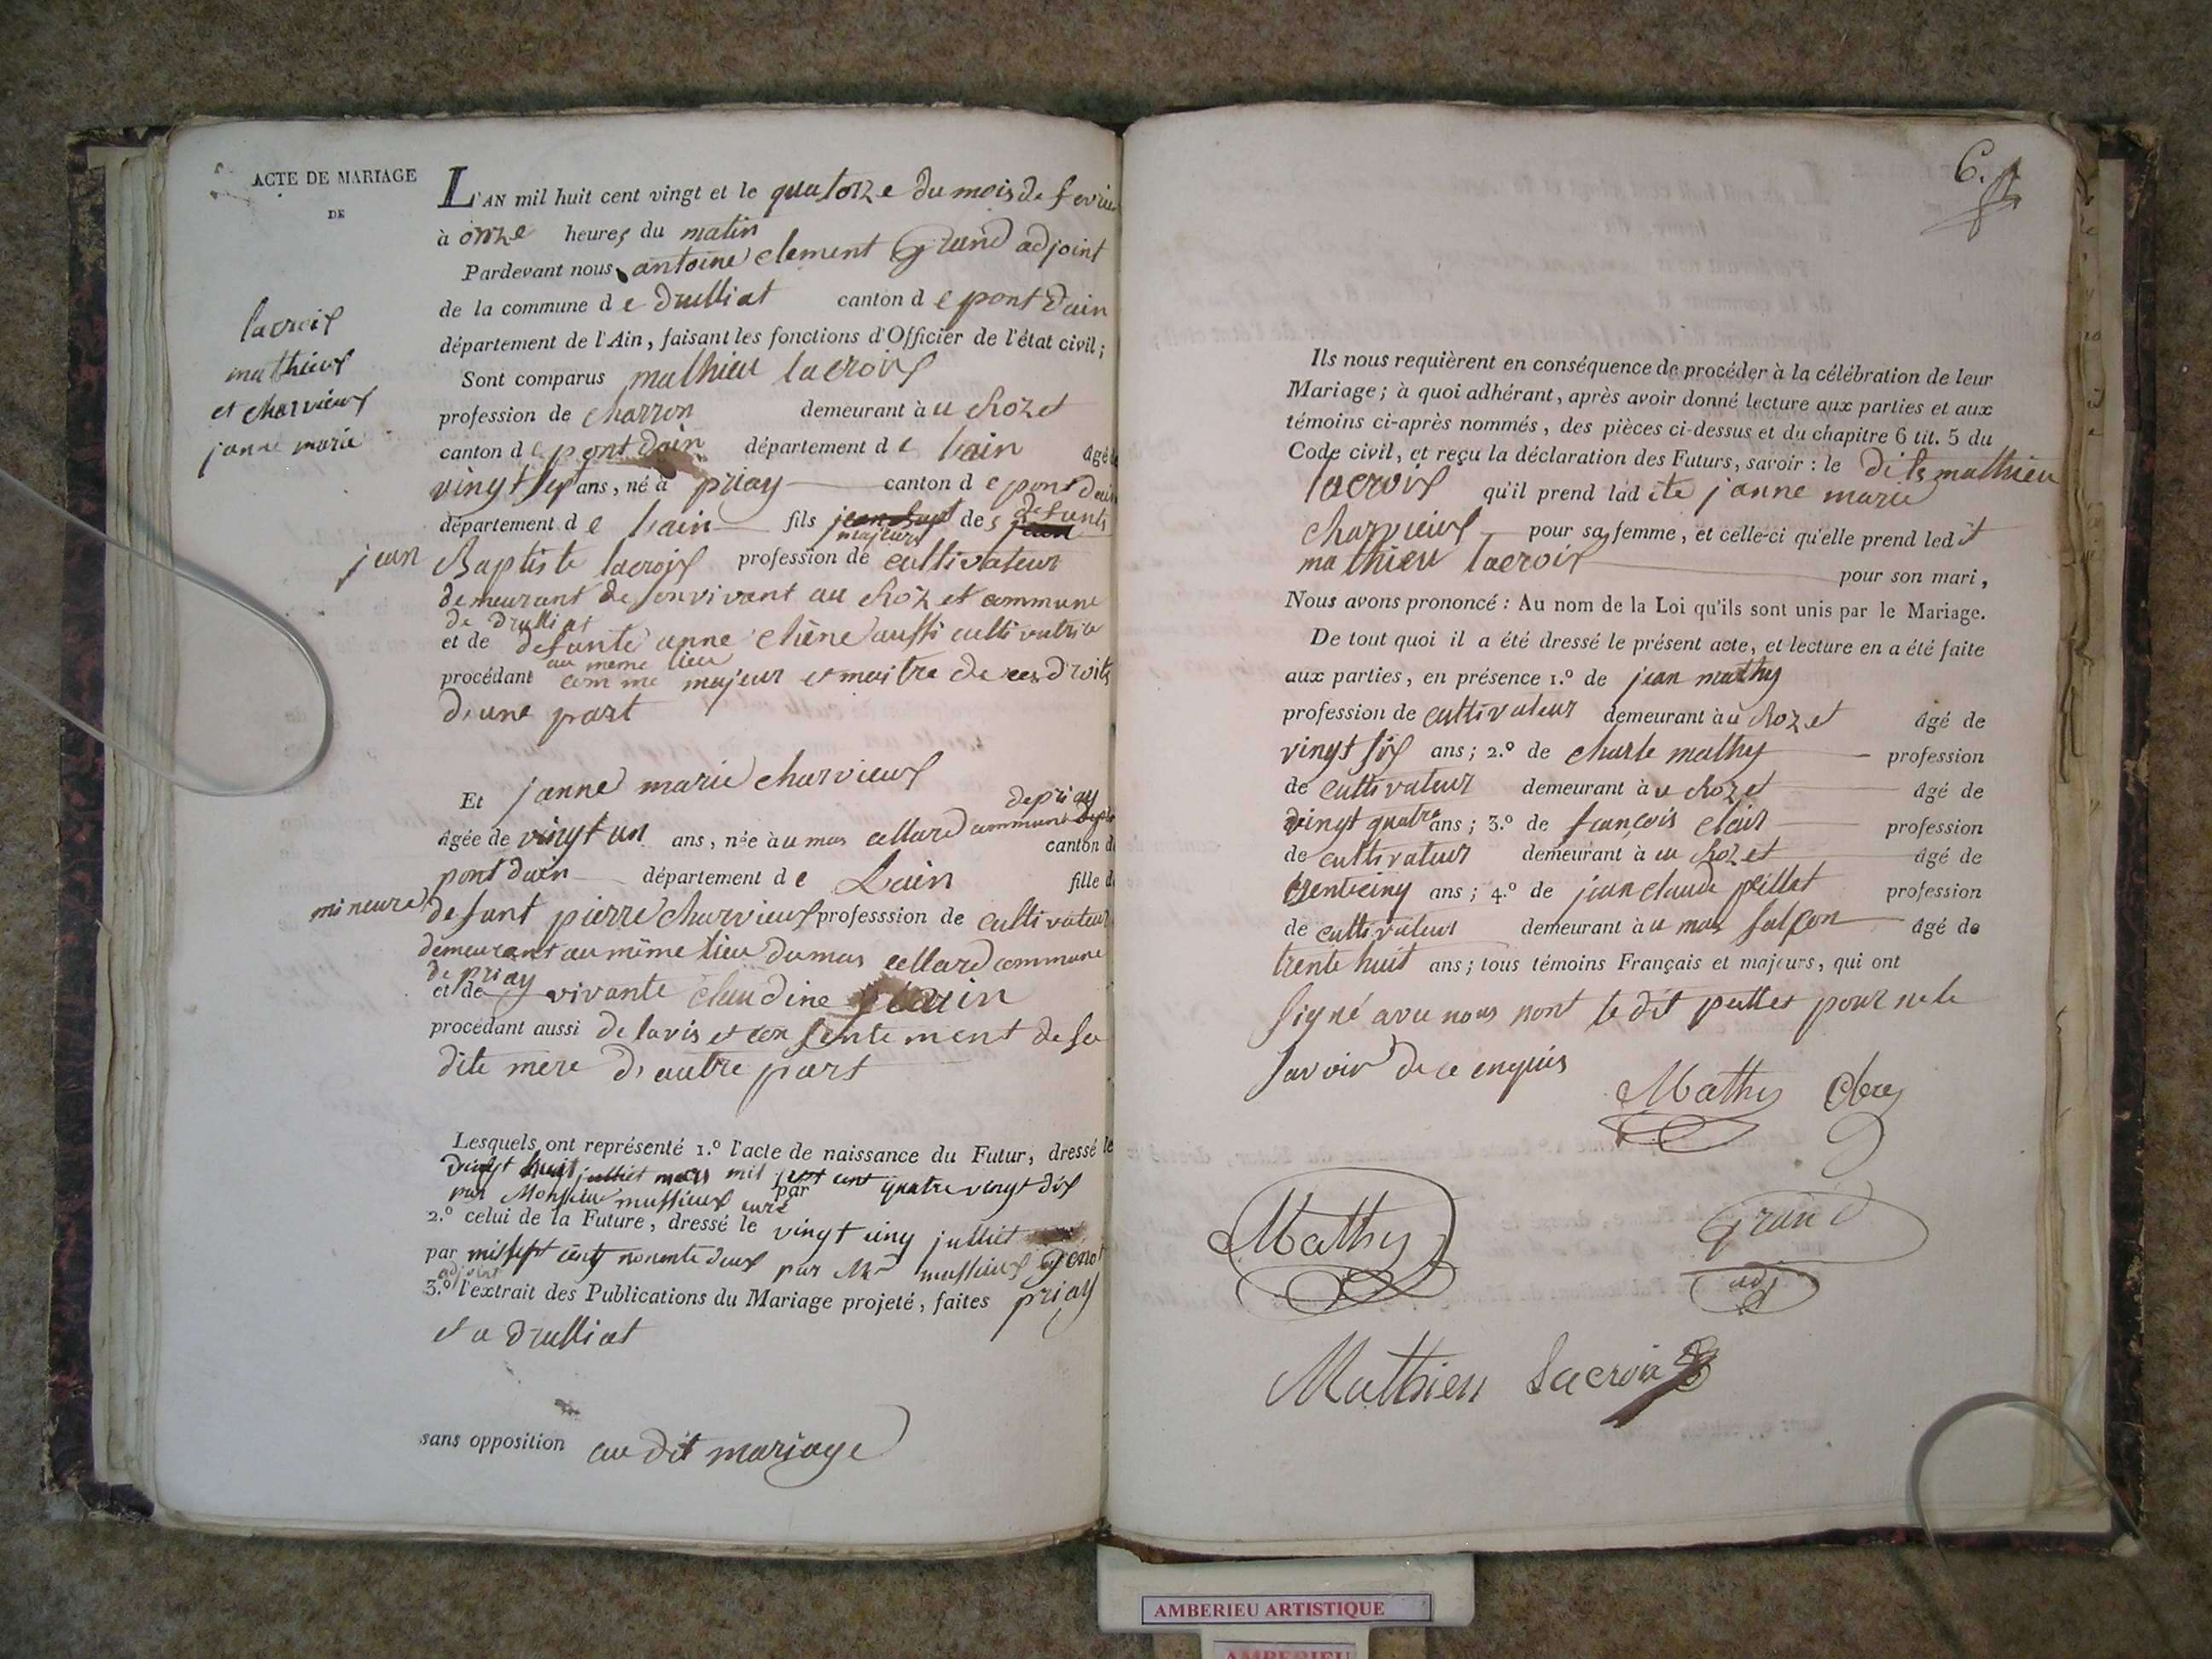 ACTE DE MARIAGE
DE
lacroix
mathieux
et charvieux
janne marie
L'AN mil huit cent vingt et le quatorze du mois de fevrier
à onze heures du matin
Pardevant nous antoine clement Grand adjoint
de la commune de druilliat canton de pont dain
département de l'Ain, faisant les fonctions d'Officier de l'état civil;
Sont comparus mathieu lacroix
profession de charron demeurant à u chozet
canton de pont dain département de lain âgé
vingt sept ans, né à priay canton de pont dain
département de lain fils majeur des defunts
jean Baptiste lacroix profession de cultivateur
demeurant de son vivant au chozet commune
de druilliat
et de defunte anne chêne aussi cultivatrice
au meme lieu
procédant comme majeur et maitre de ces droits
d'une part
Et janne marie charvieux
de priay
âgée de vingt un ans, née à u mas collard commune
canton de
pont dain département de Lain fille de
mineure defunt pierre charvieux professsion de cultivateur
demeurant au même lieu du mas collard commune
de priay
et de vivante claudine
procédant aussi de lavis et consentement de sa
dite mère d'autre part
Lesquels ont représenté 1.º l'acte de naissance du Futur, dressé le
vingt huit juilliet mars mil sept cent quatre vingt dix
par Monsieur mussieux curé
par
2.º celui de la Future, dressé le vingt cinq julliet
par mil sept cent nonente deux par Mr mussieux
adjoint
3.º l'extrait des Publications du Mariage projeté, faites priay
et a druilliat
sans opposition au dit mariage
6.
Ils nous requièrent en conséquence de procéder à la célébration de leur
Mariage; à quoi adhérant, après avoir donné lecture aux parties et aux
témoins ci-après nommés, des pièces ci-dessus et du chapitre 6 tit. 5 du
Code civil, et reçu la déclaration des Futurs, savoir: le dits mathieu
lacroix qu'il prend ladite janne marie
charvieux pour sa femme, et celle-ci qu'elle prend ledit
mathieu lacroix pour son mari,
Nous avons prononcé: Au nom de la Loi qu'ils sont unis par le Mariage.
De tout quoi il a été dressé le présent acte, et lecture en a été faite
aux parties, en présence 1.º de jean mathy
profession de cultivateur demeurant à u chozet âgé de
vingt six ans; 2.º de charle mathy profession
de cultivateur demeurant à u chozet âgé de
vingt quatre ans; 3.º de françois clair profession
de cultivateur demeurant à u chozet âgé de
trentecinq ans; 4.º de jean claude peillet profession
de cultivateur demeurant à u mas falcon âgé de
trente huit ans; tous témoins Français et majeurs, qui ont
signé avec nous nont le dit peillet pour ne le
savoir de ce enquis
Mathy
Mathy
Grand
adj
Mathieu Lacroix
AMBERIEU ARTISTIQUE
AMBERIEU